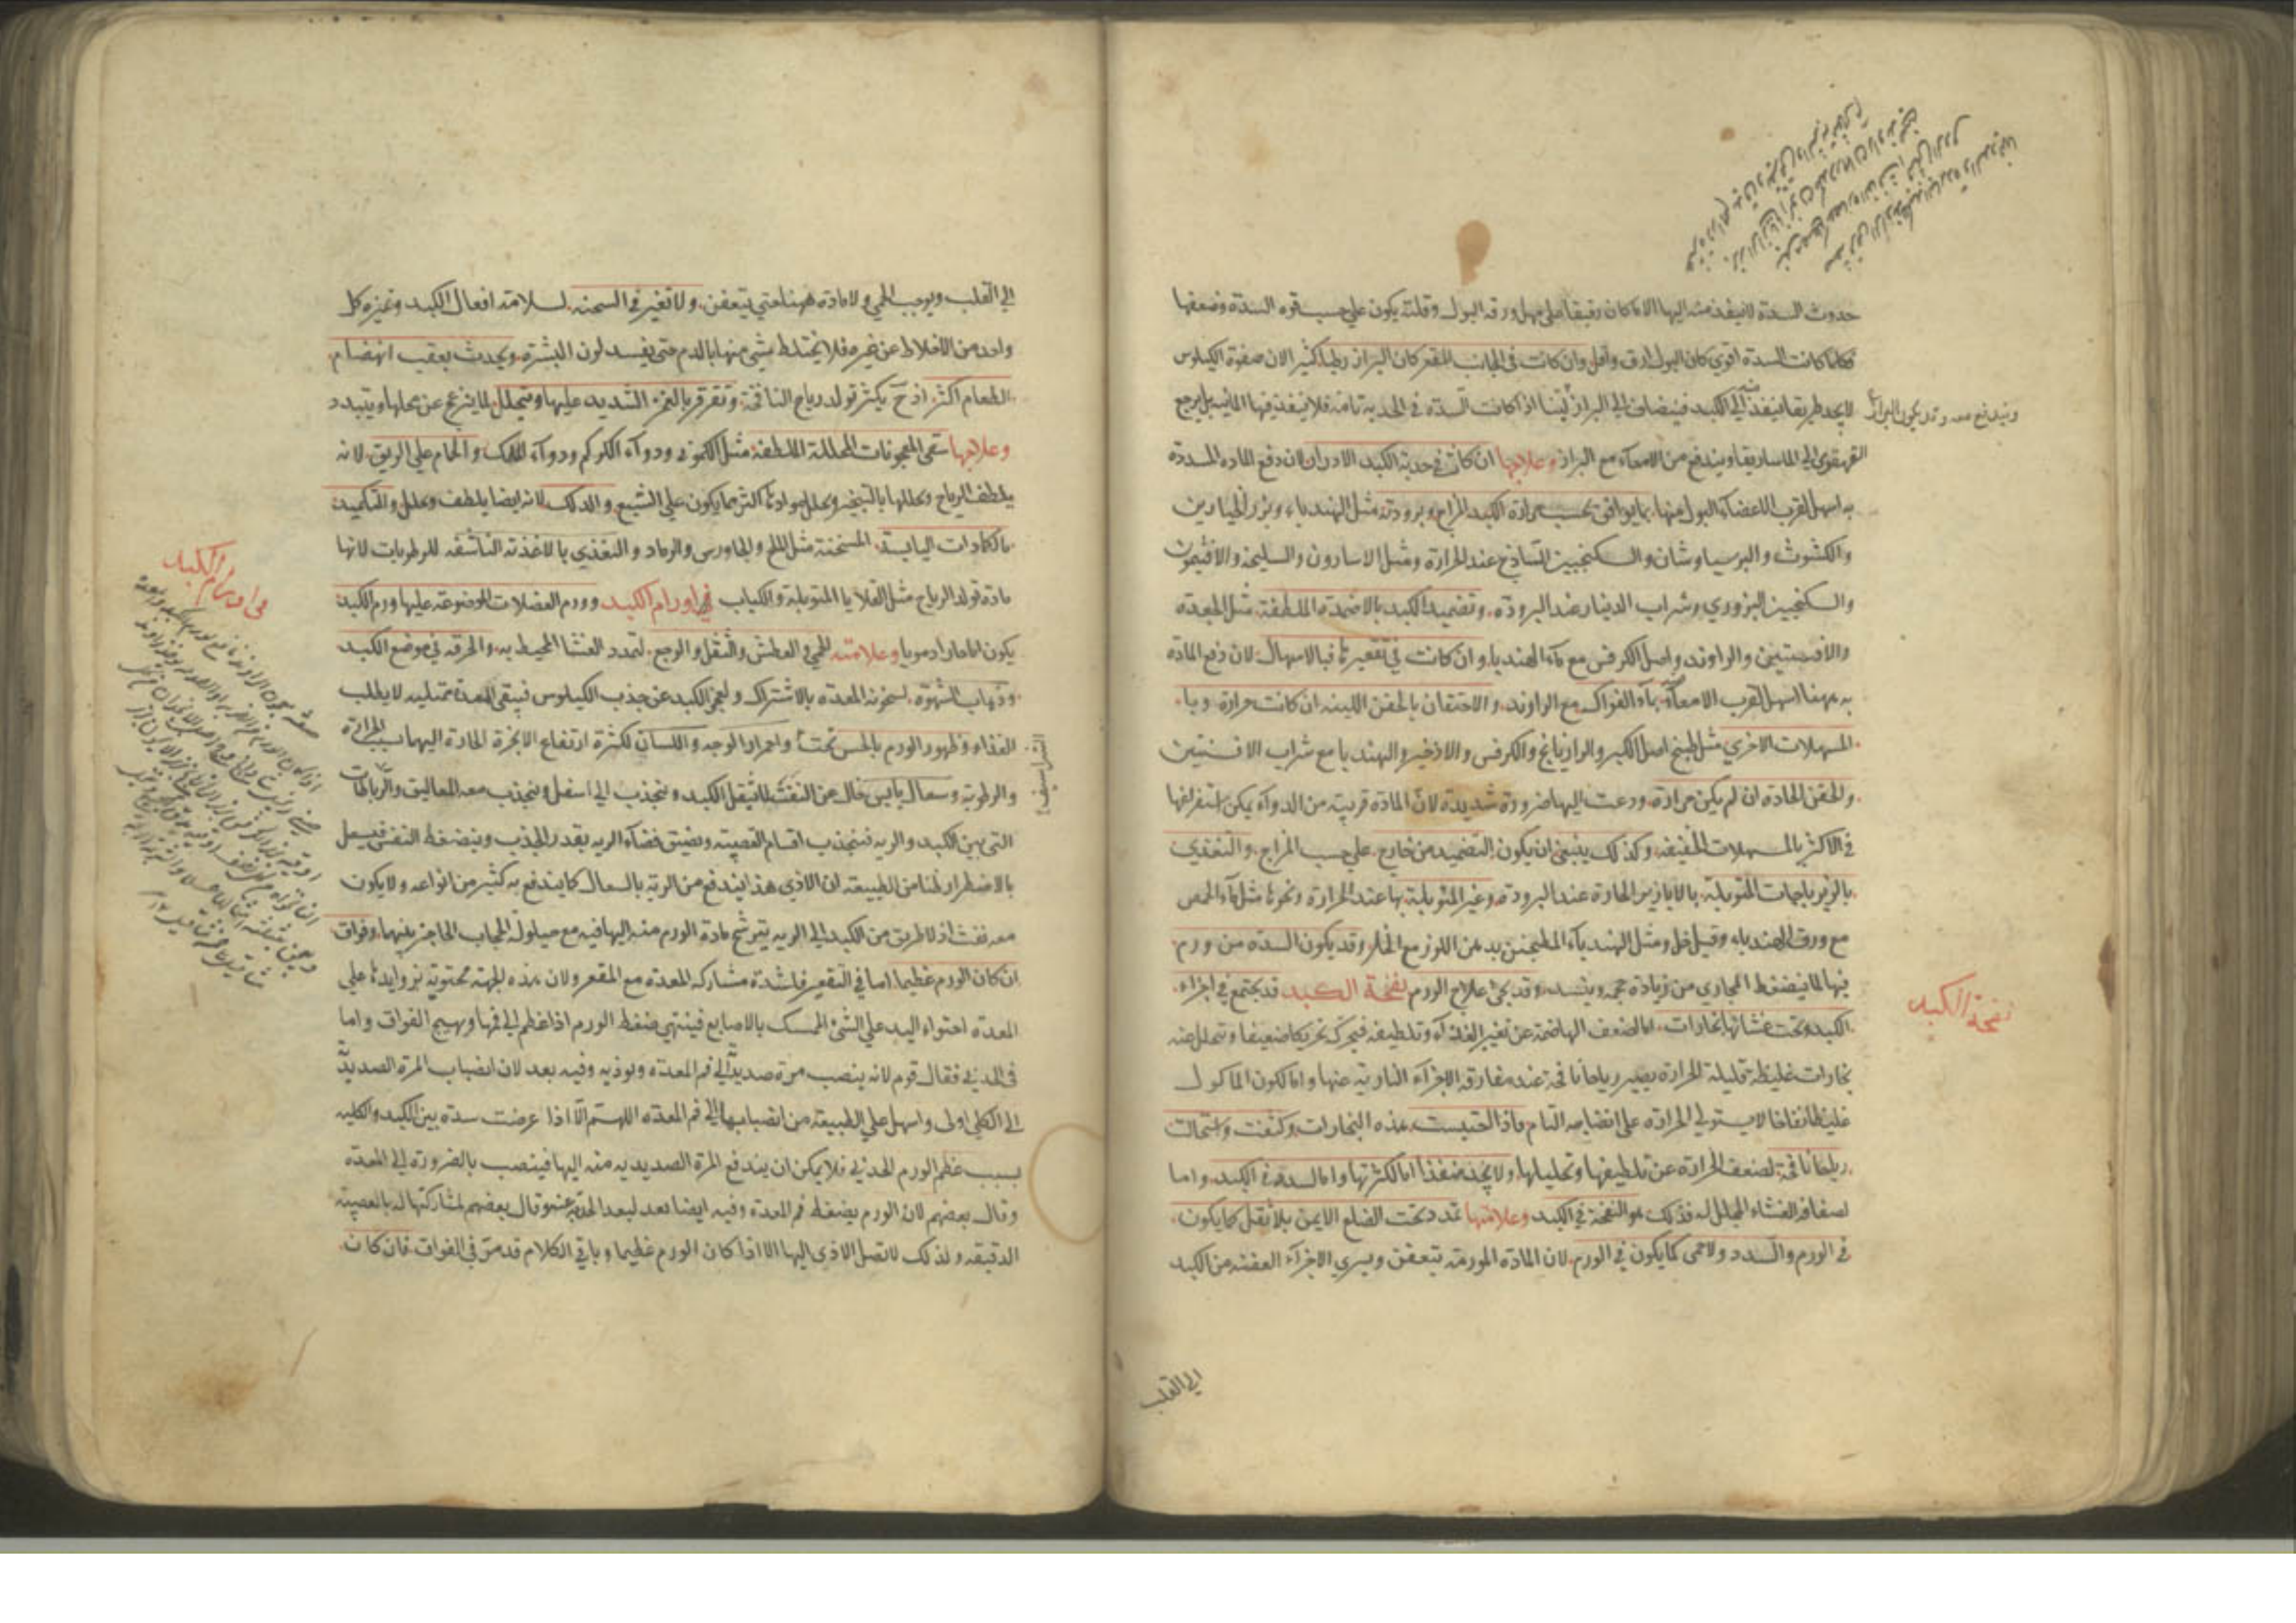 حدوث السدة لاينفذ منه اليها الا ماكان رقيقا على مهل ورقة البول وقلته يكون علي حسب قوه السدّه وضعفها
فكلما كانت السدّه اقوي كان البول ارق واقل وان كانت في الجانب المقعر كان البراز رطبا كثير الان صفوة الكيلوس
لايجد طريقا ينفذ فيه الي الكبد فينضاف الي البراز لينا اذا كانت السدّه في الحدبه تامه فلا ينفذ فيها المائيه بل يرجع
ويندفع معه وقد يكون البراز
القهقري الي الماساريقا ويندفع من الامعاء مع البراز وعلاجها ان كانت في حدبة الكبد الادرار لان دفع الماده المسددة
به اسهل لقرب الاعضاء البول منها بما يوافق بحسب حرارة الكبد المزاج وبرودته مثل الهندباء وبزر الخيارين
والكشوث والبرسياوشان والسكنجبين الساذج عند الحرارة ومثل الاسارون والسليخه والافتيمون
والسكنجبين البزوري وشراب الدينار عند البرودة. وتضميد الكبد بالاضمدة الملطفة مثل الجعده
والافسنتين والراوند واصل الكرفس مع ماء الهندبا وان كانت في تقعيرها فبالاسهال لان دفع المادة
به ههنا اسهل لقرب الامعاء بماء الفواكه مع الراوند. والاحتقان بالحقن اللينه ان كانت حرارة. وبا
المسهلات الاخري مثل طبيخ اصل الكبر والرازيانج والكرفس والاذخر والهندبا مع شراب الافسنتين
والحقن الحادة ان لم يكن حرارة. ودعت اليها ضرورة شديدة لان المادة قريبة من الدواء يمكن استفراغها
في الاكثر بالمسهلات الخفيفه وكذلك ينبغي ان يكون التضميد من خارج علي حسب المزاج. والتغذي
بالزيرباجات المتوبلة بالابازير الحارة عند البرودة وغير المتوبلة بها عند الحرارة ونحوها مثل ماء الحمص
مع ورق الهندباء وقليل خل ومثل الهندباء المطجن بدهن اللوز مع الخل وقد يكون السدّه من ورم
فيها لما ينضغط المجاري من زيادة حجمه وينسد وقد يجئ علاج الورم نفخة الكبد قد يجتمع في اجزاء
نفخة الكبد
الكبد وتحت غشائها بخارات. اما لضعف الهاضمة عن تغيير الغذاء وتلطيفه فيحرك تحريكا ضعيفا ويتحلل منه
بخارات غليظة قليلة الحرارة يصير رياحا نافخة عند مفارقة الاجزاء النارية عنها واما لكون الماكول
غليظا نفاخا لا يستولي الحرارة على انضاجه التام فاذا احتبست هذه البخارات وكثفت واستحالت
رياحا نافخة لضعف الحرارة عن تلطيفها وتحليلها ولا يجد منفذا اما لكثرتها واما لسدة في الكبد واما
لصفاقة الغشاء المجلل له فذلك هو النفخة في الكبد وعلامتها تمدد تحت الضلع الايمن بلا ثقل كما يكون
في الورم والسدد ولا حمى كما يكون في الورم لان المادة المورمة يتعفن ويسري الاجزاء العفنه من الكبد
الي القلب
الي القلب ويوجب الحمي ولا مادة ههنا حتي يتعفن. ولا تغير في السحنه لسلامة افعال الكبد وتميزه كل
واحد من الاخلاط عن غيره فلا يختلط شي منها بالدم حتي يفسد لون البشرة ويحدث بعقب انهضام
الطعام اكثر اذ ح يكثر تولد رياح النافخة وتقرقر بالغمز الشديد عليها ويتحلل لما ينزعج عن محلها ويتبدد
وعلاجها سقي المعجونات المحللة الملطفة مثل الكموني ودواء الكركم ودواء اللك والحمام علي الريق لانه
يلطف الرياح ويحللها بالتبخير ويحلل موادها اكثر مما يكون علي الشبع والدلك لانه ايضا يلطف ويحلل والتكميد
بالكمادات اليابسة المسخنة مثل الملح والجاورس والرماد والتغذي بالاغذية الناشفه للرطوبات لانها
مادة تولد الرياح مثل القلايا المتوبلة والكباب في اورام الكبد وورم العضلات الموضوعه عليها ورم الكبد
في اورام الكبد
يكون اما حارا دمويا وعلامته الحمي والعطش والثقل والوجع لتمدد الغشا المحيط به والحرقه في موضع الكبد
وذهاب الشهوة لسخونة المعده بالاشتراك وليعجز الكبد عن جذب الكيلوس فيبقي المعدة ممتليه لا يطلب
الغذاء وظهور الورم بالحس تحت واحمرار الوجه واللسان لكثرة ارتفاع الابخرة الحادة اليها بسبب الحرارة
الشراسيف
والرطوبة وسعال يابس خال عن النفث لما يثقل الكبد ويتجذب الي اسفل ويتجذب معه المعاليق والرباطات
التي بين الكبد والريه فينجذب اقسام القصبة ويضيق فضاء الريه بقدر الجذب وينضغط النفس فيسعل
بالاضطرار ظنا من الطبيعة ان الاذي هذا يندفع من الرية بالسعال كما يندفع به كثير من انواعه ولا يكون
معه نفث اذ لا طريق من الكبد الي الريه يترشح مادة الورم منه اليها فيه مع حيلولة الحجاب الحاجز بينهما وفواق
ان كان الورم عظيما اما في التقعير فلشدة مشاركة المعدة مع المقعر ولان هذه الجهة محتوية بزوايدها علي
المعدة احتواء اليد علي الشئ الممسك بالاصابع فينتهي ضغط الورم اذا عظم الي فمها ويهيج الفواق واما
في الحدبي فقال قوم لانه ينصب مرة صديدية الي فم المعدة ويوذيه وفيه بعد لان انصباب المرة الصديدية
الي الكلي اولى واسهل علي الطبيعة من انصبابها الي فم المعدة اللهم الا اذا عرضت سدة بين الكبد والكليه
بسبب عظم الورم الحدبي فلا يمكن ان يندفع المرة الصديديه منه اليها فينصب بالضرورة الي المعدة
وقال بعضهم لان الورم يضغط فم المعدة وفيه ايضا بعد لبعد الحدبة عنه وقال بعضهم لمشاركتها له بالعصبة
الدقيقه ولذلك لا تصل الاذى اليها الا اذا كان الورم عظيما وباقي الكلام قد مر في الفواق. فان كان